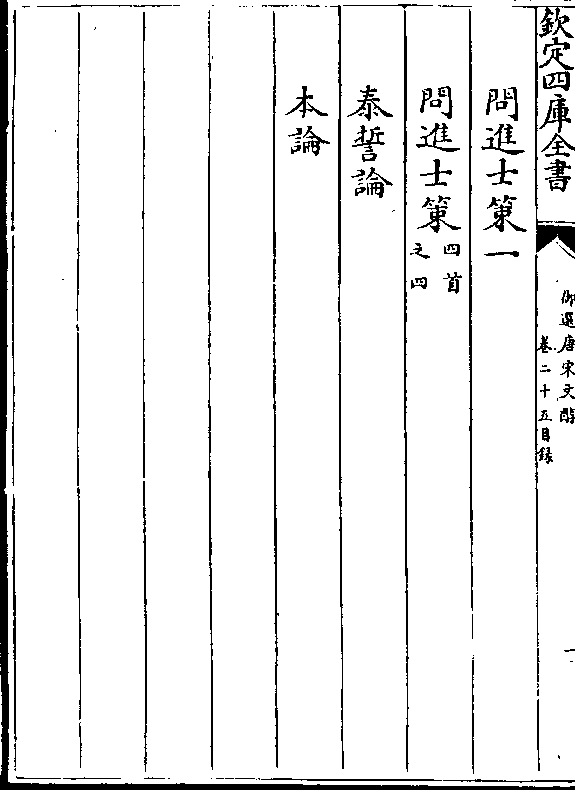 欽定四庫全書
御選唐宋文醇
卷二十五目錄
問進士策一
問進士策四首之四
泰誓論
本論